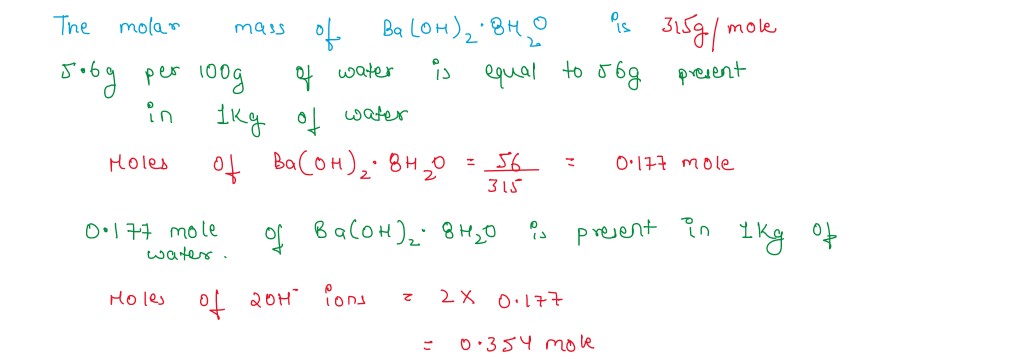 The molar mass of Ba(OH)₂·8H₂O is 315g/mole
5.6g per 100g of water is equal to 56g present
in 1Kg of water
Moles of Ba(OH)₂·8H₂O = 56/315 = 0.177 mole
0.177 mole of Ba(OH)₂·8H₂O is present in 1Kg of
water.
Moles of 2OH⁻ ions = 2 x 0.177
= 0.354 mole